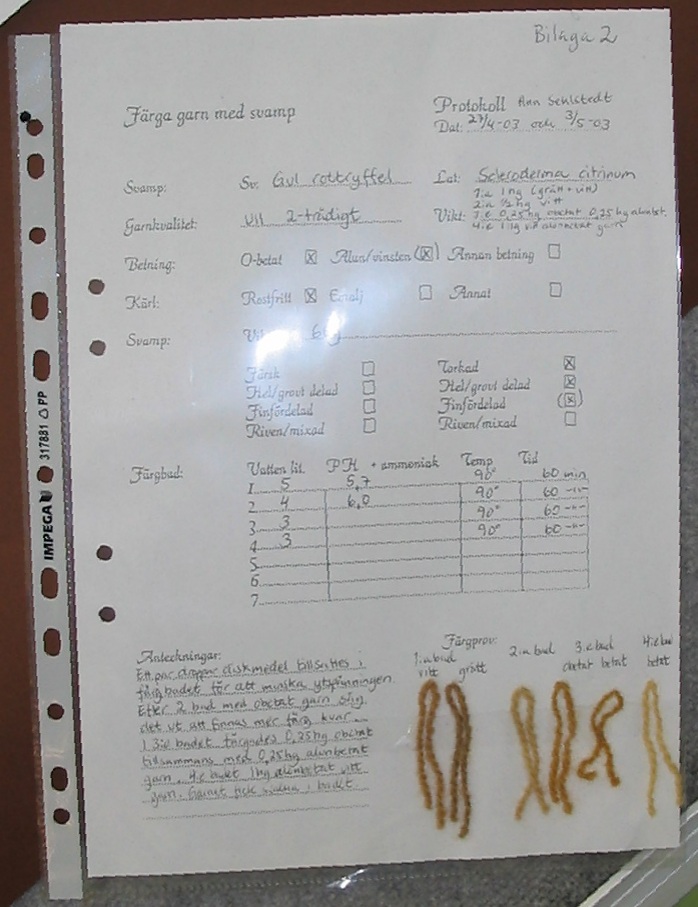 Bilaga 2
Färga garn med svamp
Protokoll Ann Sehlstedt
Dat: 27/4-03 och 3/5-03
Svamp: Sv: Gul rottryffel Lat: Scleroderma citrinum
1:a 1 hg (grått + vitt)
2:a 1/2 hg vitt
Garnkvalitet: Ull 2-trådigt Vikt: 3:e 0,25 hg obetat 0,25 hg alunbetat
4:e 1 hg vit alunbetat garn
Betning: O-betat ☒ Alun/vinsten (☒) Annan betning ☐
Kärl: Rostfritt ☒ Emalj ☐ Annat ☐
Svamp:
Färsk ☐ Torkad ☒
Hel/grovt delad ☐ Hel/grovt delad ☒
Finfördelad ☐ Finfördelad (☒)
Riven/mixad ☐ Riven/mixad ☐
Färgbad: Vatten lit. PH + ammoniak Temp Tid
1. 5 5,7 90° 60 min
2. 4 6,0 90° 60 -"-
3. 3 90° 60 -"-
4. 3 90° 60 -"-
5.
6.
7.
Anteckningar:
Ett par droppar diskmedel tillsattes i
färgbadet för att minska ytspänningen.
Efter 2 bad med obetat garn såg
det ut att finnas mer färg kvar.
I 3:e badet färgades 0,25 hg obetat
tillsammans med 0,25 hg alunbetat
garn. 4:e badet 1 hg alunbetat vitt
garn. Garnet fick svalna i badet.
Färgprov:
1:a bad 2:a bad 3:e bad 4:e bad
vitt grått obetat betat betat
IMPEGA 317881 PP